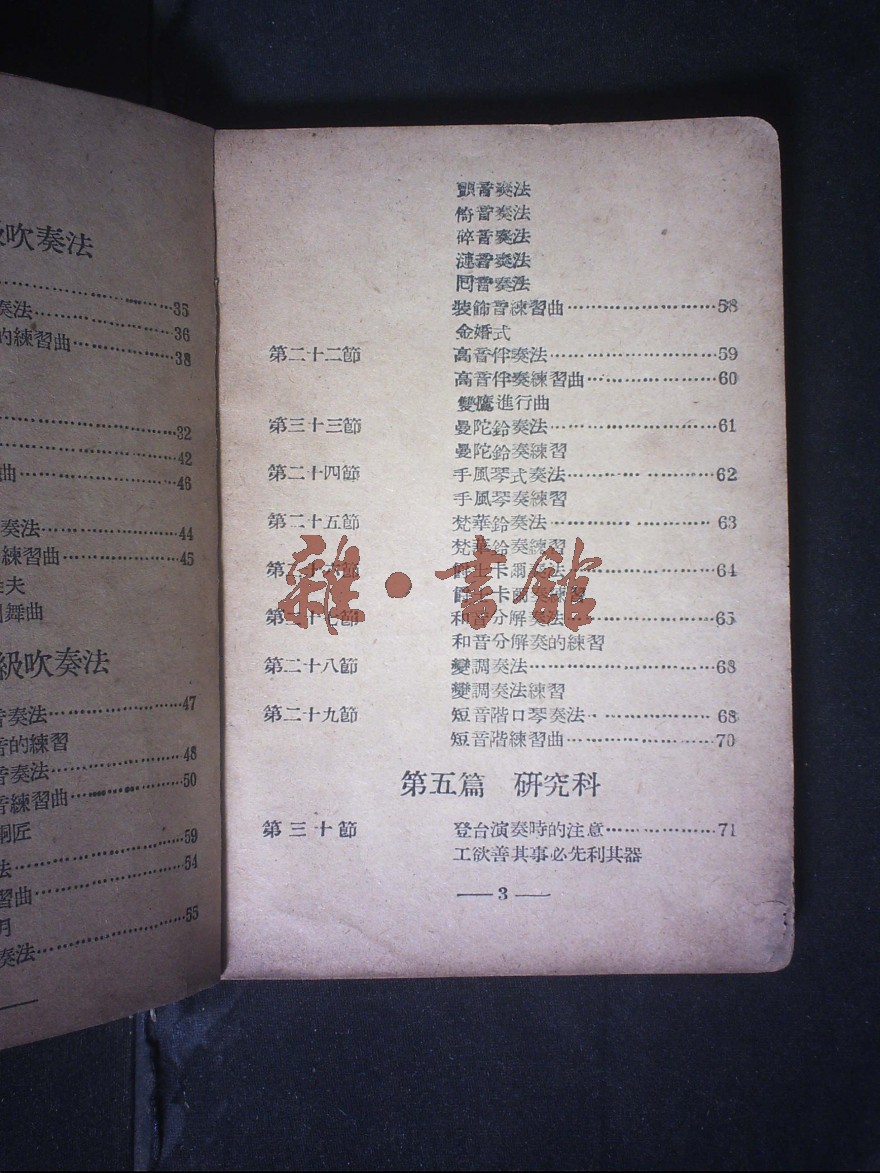 級吹奏法
35
奏法 36
的練習曲 38
32
42
曲 46
奏法 44
練習曲 45
夫
舞曲
級吹奏法
音奏法 47
音的練習
音奏法 48
音練習曲 50
銅匠
59
法 54
習曲
月 55
奏法
顫音奏法
倚音奏法
碎音奏法
漣音奏法
囘音奏法
裝飾音練習曲 58
金婚式
第二十二節 高音伴奏法 59
高音伴奏練習曲 60
雙鷹進行曲
第三十三節 曼陀鈴奏法 61
曼陀鈴奏練習
第二十四節 手風琴式奏法 62
手風琴奏練習
第二十五節 梵華鈴奏法 63
梵華鈴奏練習
第二十六節 爵士卡爾奏法 64
爵士卡爾奏練習
第二十七節 和音分解奏法 65
和音分解奏的練習
第二十八節 變調奏法 68
變調奏法練習
第二十九節 短音階口琴奏法 68
短音階練習曲 70
第五篇 研究科
第三十節 登台演奏時的注意 71
工欲善其事必先利其器
— 3 —
雜·書館